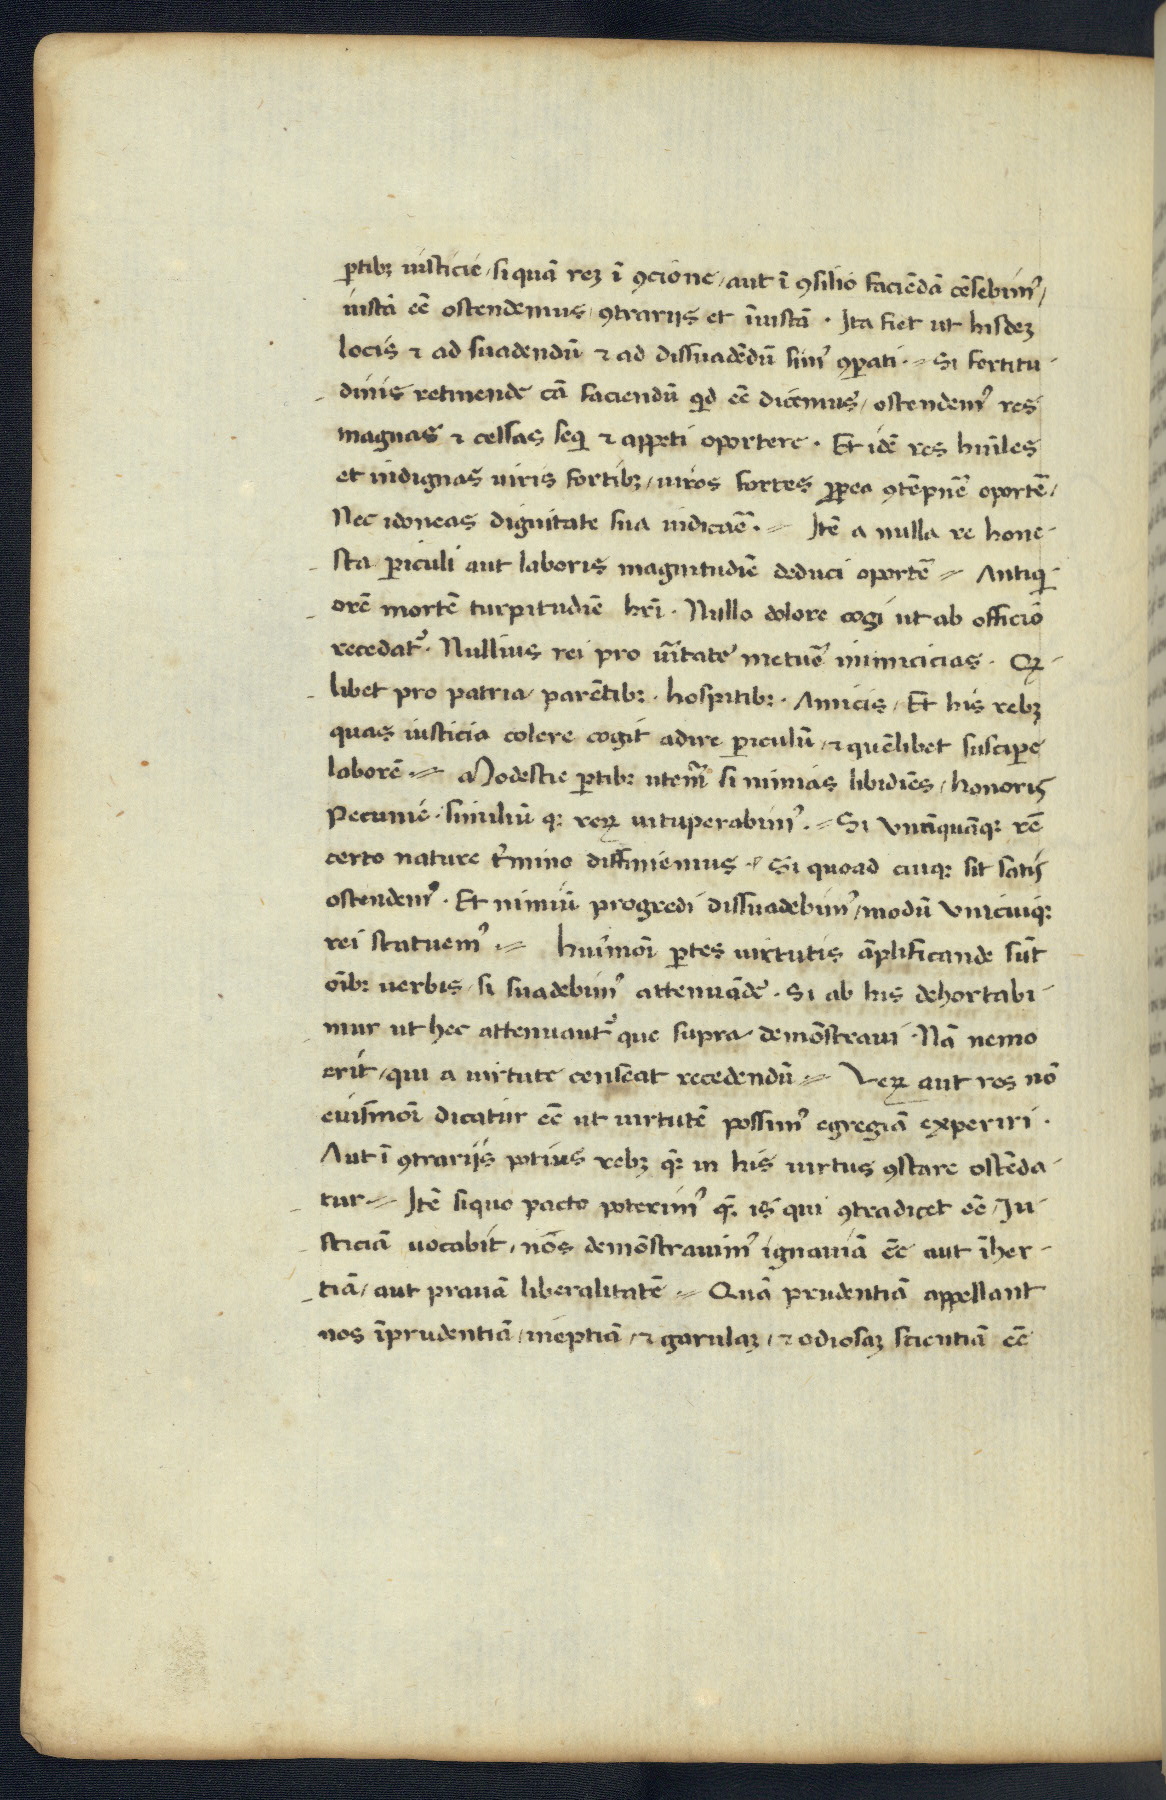 ꝑtibꝫ iusticie / si quā reꝫ ī ꝯcione / aut ī ꝯsilio faciēdā cēsebimꝰ /
iustā eē ostendemus / ꝯtrarijs et īiustā · Ita fiet ut hisdeꝫ
locis ⁊ ad suadendū ⁊ ad dissuadēdū simꝰ ꝯꝑati · Si fortitu-
dinis retinende cā faciendū qͥd eē dicemus / ostendemꝰ res
magnas ⁊ celsas seqͥ ⁊ appeti oportere · Et idē res humīles
et indignas uiris fortibꝫ / uiros fortes ꝓpea ꝯtēpnē oportē /
Nec idoneas dignitate sua iudicaē · Itē a nulla re hone-
sta ꝑiculi aut laboris magnitudiē deduci oportē Antiqͥ-
orē mortē turpitudiē hri̅ · Nullo dolore cogi ut ab officio
recedatᷣ · Nullius rei pro uītate metuē inimicicias · Qꝫ
libet pro patria parētibꝫ · hospitibꝫ · Amicis / Et his rebꝫ
quas iusticia colere cogit adire ꝑiculū / ⁊ quēlibet suscipe̅
laborē · Modestie ꝑtibꝫ utemᷣ si nimias libidiēs / honoris
Pecunie · similiū qꝫ reꝝ uituperabimꝰ · Si Vnāquāqꝫ rē
certo nature tᷣmino diffiniemus · Si quoad cuiqꝫ sit satis
ostendemꝰ · Et nimiū progredi dissuadebimꝰ / modū Vnicuiqꝫ
rei statuemꝰ · huiꝰmōi ꝑtes uirtutis āplificande sūt
oībꝫ uerbis / si suadebimꝰ attenuāde · Si ab his dehortabi-
mur ut hec attenuantᷣ que supra demōstraui · Nā nemo
erit / qui a uirtute censeat recedendū Veꝝ aut res nō
euismōi dicatur eē ut uirtutē possimꝰ egregiā experiri ·
Aut ī ꝯtrarijs potius rebꝫ qꝫ in his uirtus ꝯstare ostēda-
tur · Itē si quo pacto poterimꝰ qꝫ is qui ꝯtradicet eē / Iu-
sticiā uocabit / nos demōstrauimꝰ ignauiā eē aut īher-
tiā / aut prauā liberalitatē Quā prudentiā appellant
nos īprudentiā / ineptiā / ⁊ garulaꝫ / ⁊ odiosaꝫ scientiā eē